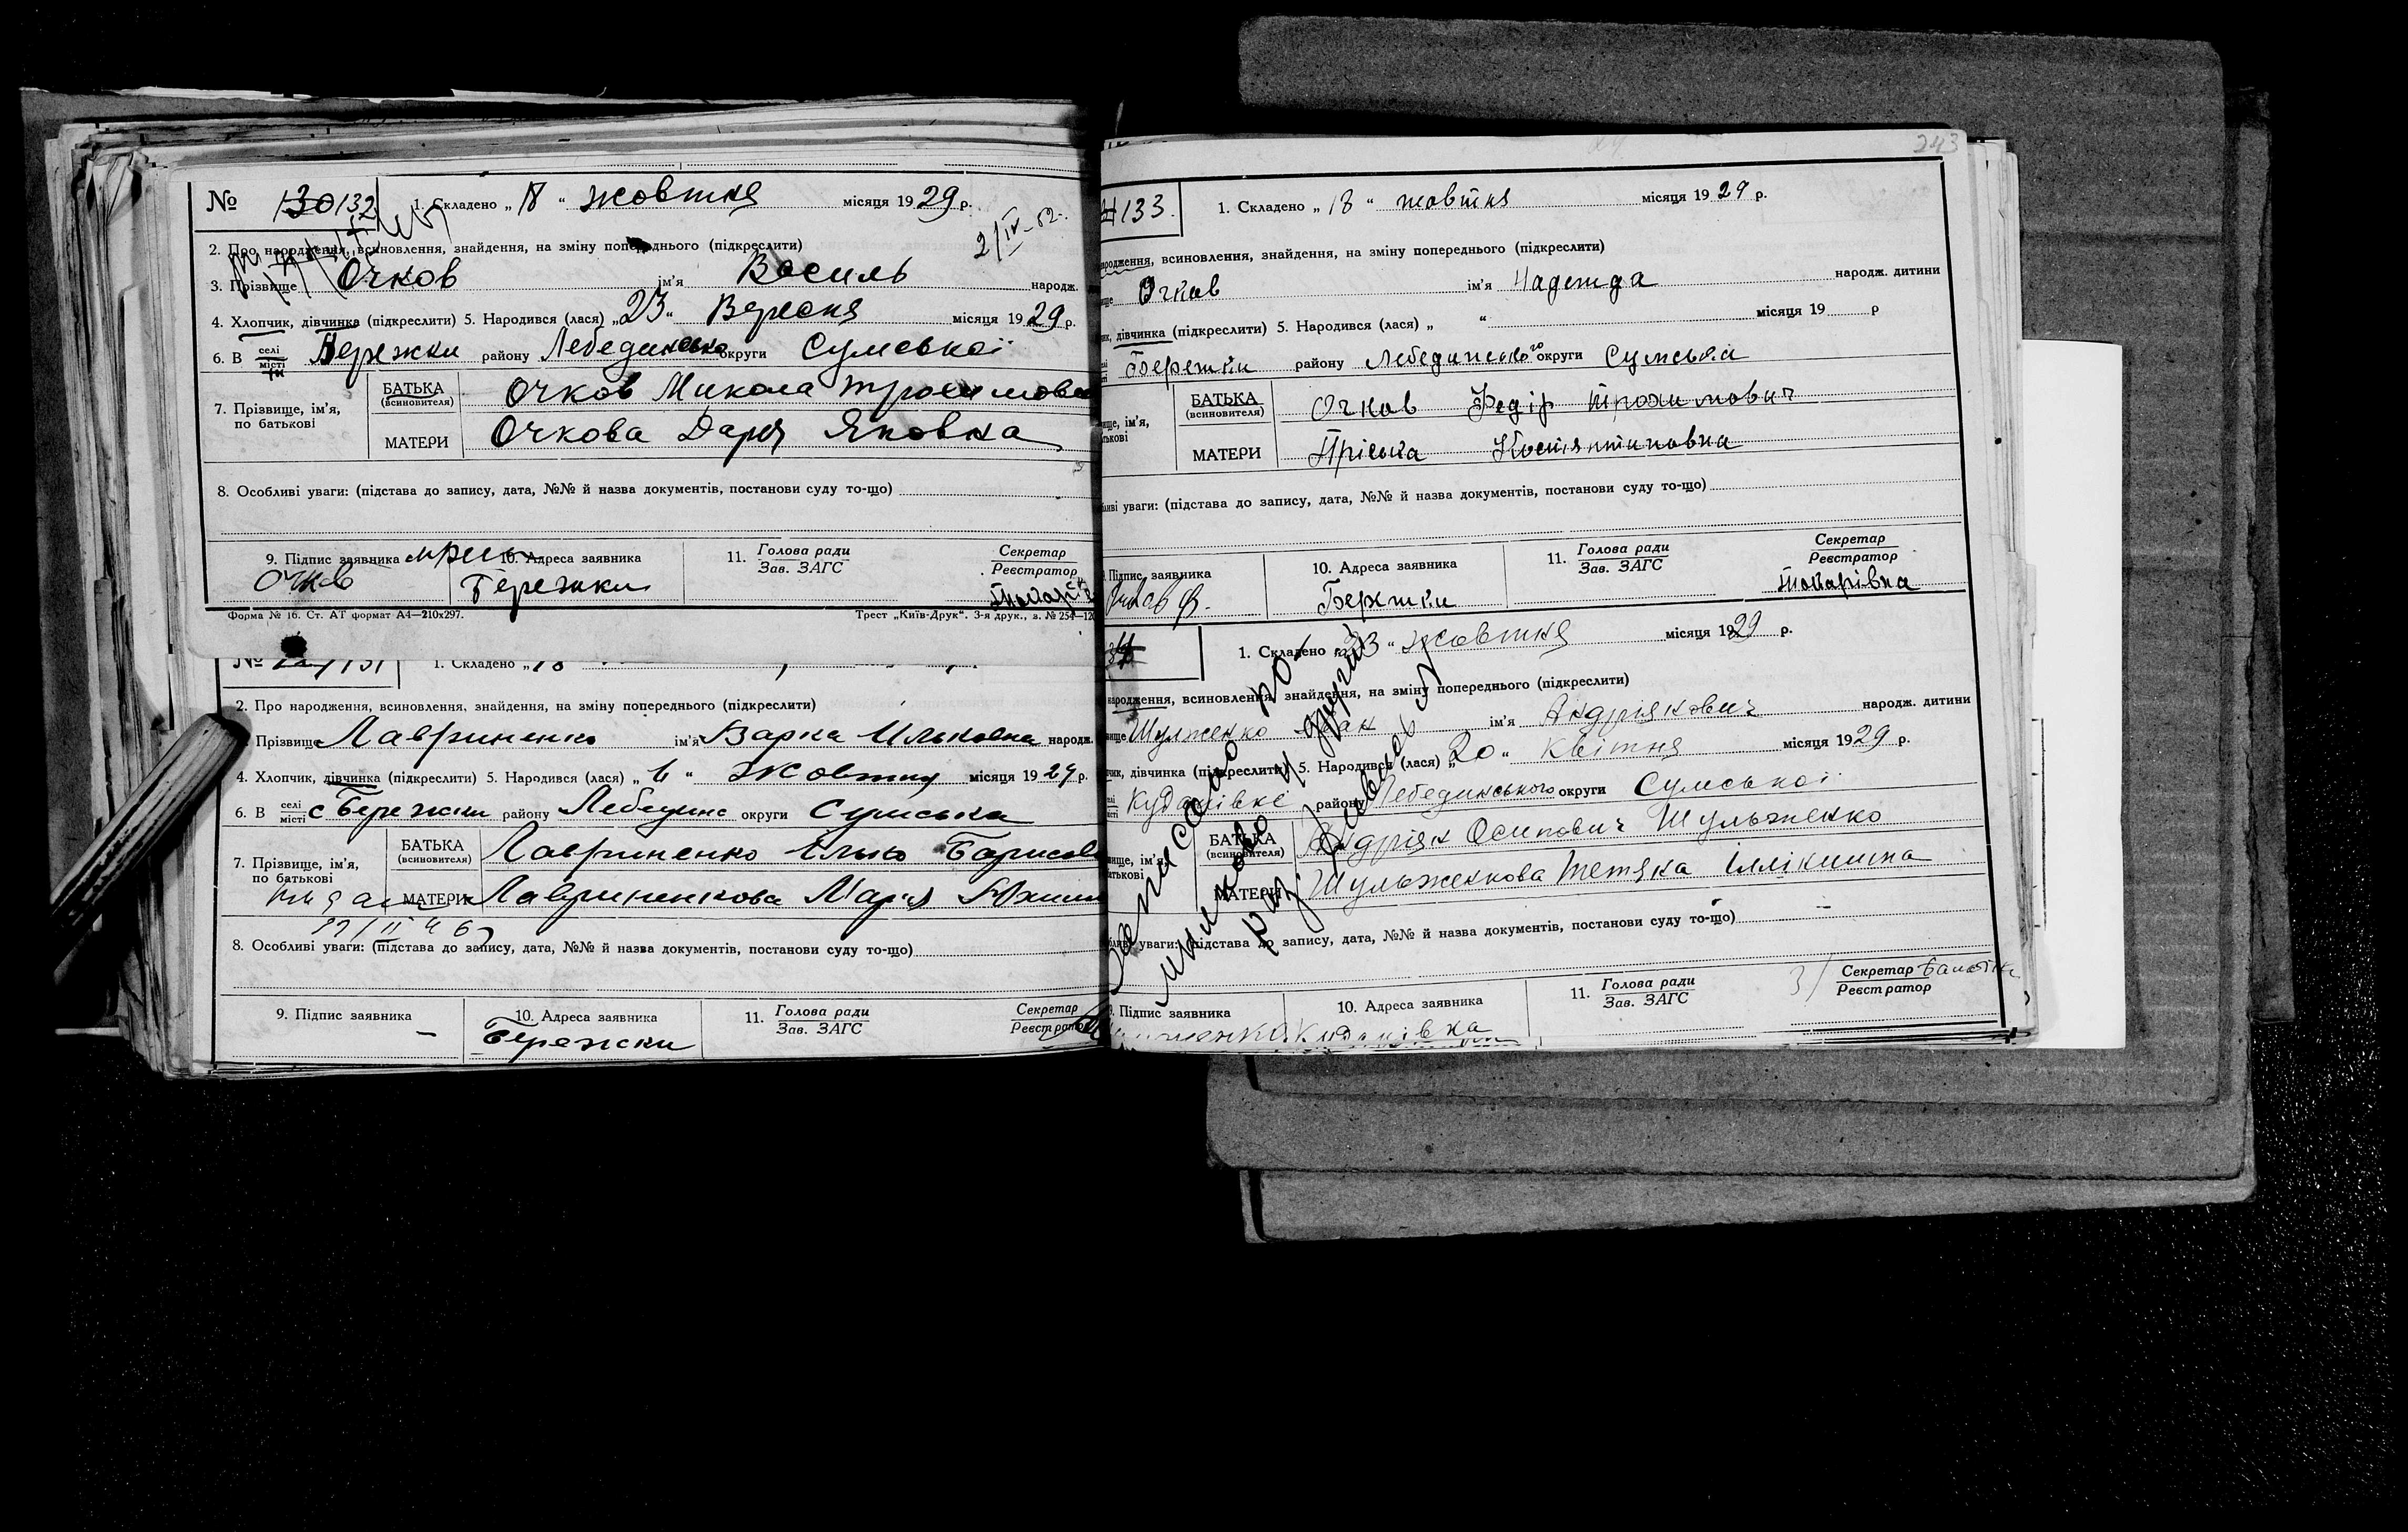 № 130 132
1. Складено „ 18 “ жовтня місяця 1929 р.
2/IV-52.
2. Про народження, всиновлення, знайдення, на зміну попереднього (підкреслити)
3. Прізвище Очков ім’я Василь народж.
4. Хлопчик, дівчинка (підкреслити) 5. Народився (лася) „23“ Вересня місяця 1929 р.
6. В селі місті Бережки району Лебединсько округи Сумської
7. Прізвище, ім’я, по батькові
БАТЬКА (всиновителя) Очков Микола Трохимови
МАТЕРИ Очкова Дарья Яковна
8. Особливі уваги: (підстава до запису, дата, №№ й назва документів, постанови суду то-що)
9. Підпис заявника
Очков
10. Адреса заявника
Бережки
11. Голова ради
Зав. ЗАГС
Секретар
Реєстратор
Форма № 16. Ст. АТ формат А4—210х297.
Трест „Київ-Друк“. 3-я друк., з. № 254—12
№ 131
1. Складено „ 18
2. Про народження, всиновлення, знайдення, на зміну попереднього (підкреслити)
Прізвище Лавриненко ім’я Варка Ільковна народж.
4. Хлопчик, дівчинка (підкреслити) 5. Народився (лася) „ “ Жовтня місяця 1929 р.
6. В селі місті с Бережки району Лебединс округи Сумська
7. Прізвище, ім’я, по батькові
БАТЬКА (всиновителя) Лавриненко Ілько Борисов
МАТЕРИ Лавриненкова Марія
8. Особливі уваги: (підстава до запису, дата, №№ й назва документів, постанови суду то-що)
9. Підпис заявника
–
10. Адреса заявника
Бережки
11. Голова ради
Зав. ЗАГС
Секретар
Реєстратор
243
133.
1. Складено „ 18 “ жовтня місяця 1929 р.
народження, всиновлення, знайдення, на зміну попереднього (підкреслити)
ище Очков ім’я Надежда народж. дитини
чик, дівчинка (підкреслити) 5. Народився (лася) „ “ місяця 19 р
Бережки району Лебединського округи Сумська
ище, ім’я,
атькові
БАТЬКА (всиновителя) Очков Федір Трохимович
МАТЕРИ Пріська Костянтиновна
ливі уваги: (підстава до запису, дата, №№ й назва документів, постанови суду то-що)
Підпис заявника
Очков Ф.
10. Адреса заявника
Бережки
11. Голова ради
Зав. ЗАГС
Секретар
Реєстратор
Токарівна
1. Складено „ 23 “ жовтня місяця 1929 р.
народження, всиновлення, знайдення, на зміну попереднього (підкреслити)
ище Шулженко ім’я Андріякович народж. дитини
чик, дівчинка (підкреслити) 5. Народився (лася) „20“ Квітня місяця 1929 р.
Кудапівкє району Лебединського округи Сумської
ище, ім’я,
атькові
БАТЬКА (всиновителя) Андріян Осипович Шульженко
МАТЕРИ Шульженкова Тетяна Іллікишна
Записано по-
милково
другий
раз
ливі уваги: (підстава до запису, дата, №№ й назва документів, постанови суду то-що)
Підпис заявника
10. Адреса заявника
Кудапівка
11. Голова ради
Зав. ЗАГС
Секретар
Реєстратор